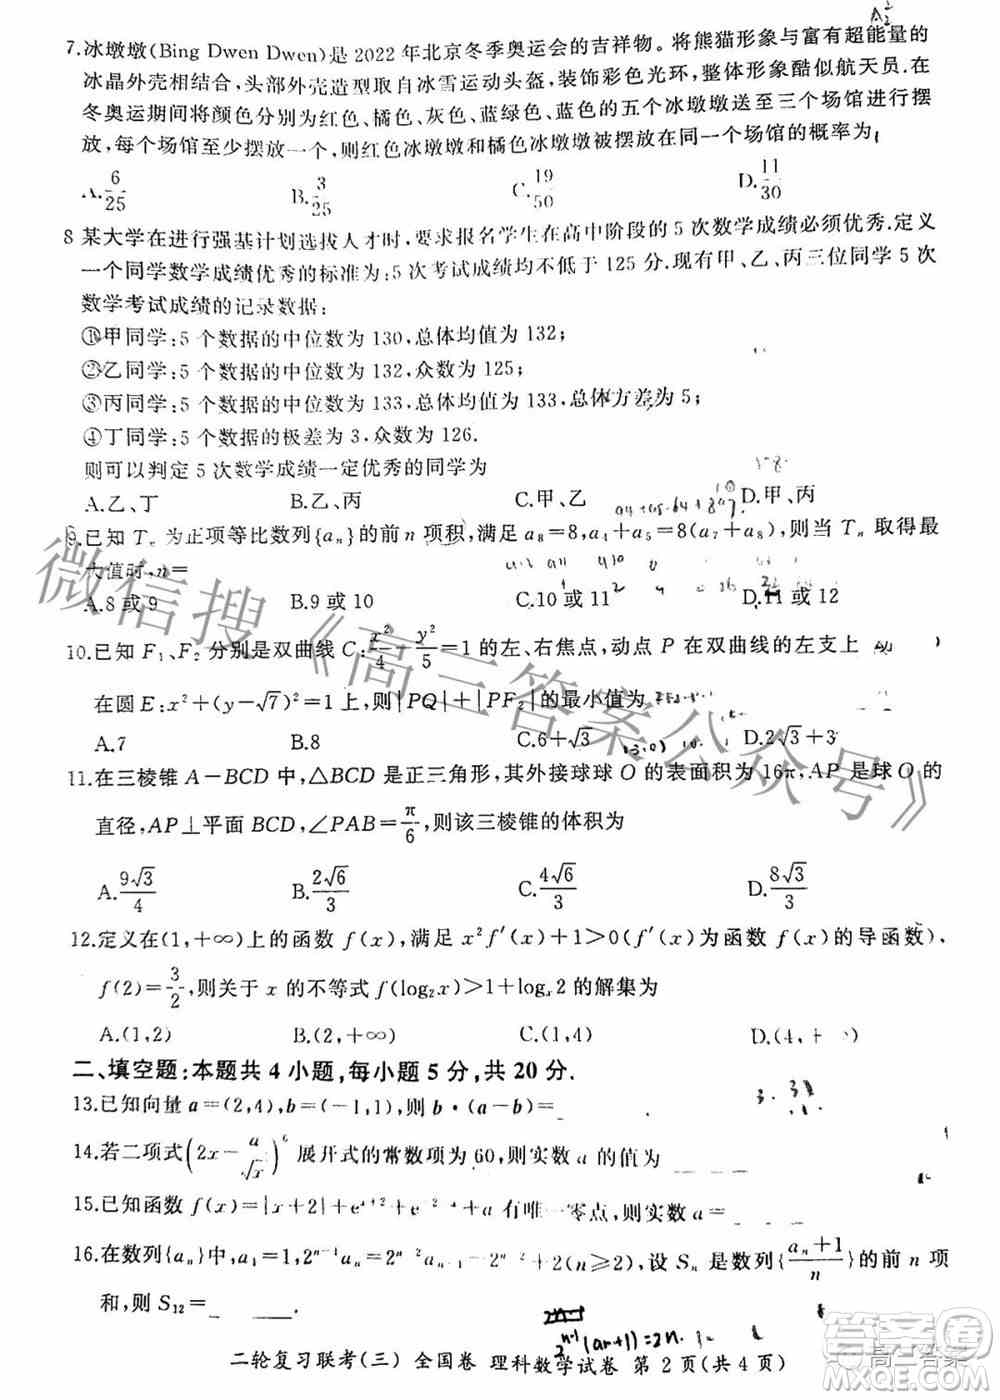 7.冰墩墩(Bing Dwen Dwen)是2022年北京冬季奥运会的吉祥物。将熊猫形象与富有超能量的
冰晶外壳相结合,头部外壳造型取自冰雪运动头盔,装饰彩色光环,整体形象酷似航天员.在
冬奥运期间将颜色分别为红色、橘色、灰色、蓝绿色、蓝色的五个冰墩墩安送至三个场馆进行摆
放,每个场馆至少摆放一个,则红色冰墩墩和橘色冰墩墩被摆放同一个场馆的概率为
A.6/25 B.3/25 C.19/50 D.11/30
8 某大学在进行强基计划选拔人才时,要求报名学生在高中阶段的5次数学成绩必须优秀.定义
一个同学数学成绩优秀的标准为:5次考试成绩均不低于125分.现有甲、乙、丙三位同学5次
数学考试成绩的记录数据:
①甲同学:5个数据的中位数为130,总体均值为132;
②乙同学:5个数据的中位数为132,众数为125;
③丙同学:5个数据的中位数为133,总体均值为133,总体方差为5;
④丁同学:5个数据的极差为3,众数为126.
则可以判定5次数学成绩一定优秀的同学为
A.乙、丁 B.乙、丙 C.甲、乙 D.甲、丙
9.已知 Tₙ 为正项等比数列{aₙ}的前n项积,满足a₈=8,a₄+a₅=8(a₇+a₈),则当Tₙ取得最
大值时,n=
A.8或9 B.9或10 C.10或11 D.11或12
10.已知F₁、F₂分别是双曲线C:x²/4-y²/5=1的左、右焦点,动点P在双曲线的左支上
在圆E:x²+(y-√7)²=1上,则|PQ|+|PF₂|的最小值为
A.7 B.8 C.6+√3 D.2√3+3
11.在三棱锥A-BCD中,△BCD是正三角形,其外接球球O的表面积为16π,AP是球O的
直径,AP⊥平面BCD,∠PAB=π/6,则该三棱锥的体积为
A.9√3/4 B.2√6/3 C.4√6/3 D.8√3/3
12.定义在(1,+∞)上的函数f(x),满足x²f′(x)+1>0(f′(x)为函数f(x)的导函数),
f(2)=3/2,则关于x的不等式f(log₂x)>1+logₓ2的解集为
A.(1,2) B.(2,+∞) C.(1,4) D.(4,+∞)
二、填空题:本题共4小题,每小题5分,共20分.
13.已知向量a=(2,4),b=(-1,1),则b·(a-b)=
14.若二项式(2x-a/√x)⁶展开式的常数项为60,则实数a的值为
15.已知函数f(x)=|x+2|+eˣ⁺²+e⁻²⁻ˣ+a有唯一零点,则实数a=
16.在数列{aₙ}中,a₁=1,2ⁿ⁻¹aₙ=aₙ₋₁-2ⁿ⁻¹+2(n≥2),设Sₙ是数列{(aₙ+1)/n}的前n项
和,则S₁₂=
二轮复习联考(三) 全国卷 理科数学试卷 第2页(共4页)
微信搜《高三答案公众号》